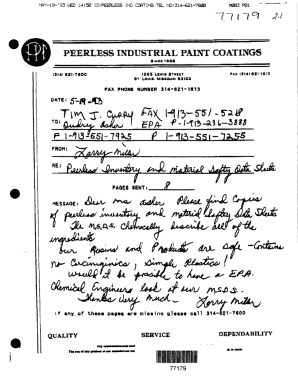 MAY-19-'93 WED 14:50 ID:PEERLESS IND COATING TEL NO:314-621-7600 #003 P01
77179 2.1
PEERLESS INDUSTRIAL PAINT COATINGS
SINCE 1928
(314) 621-7600
1265 LEWIS STREET
ST LOUIS, MISSOURI 63102
FAX (314) 621-1613
FAX PHONE NUMBER 314-621-1613
DATE: 5-19-93
TIM J. CURRY FAX 1-913-551-5218
TO: Audrey Asher EPA P-1-913-236-3888
F 1-913-551-7925 P 1-913-551-7255
FROM: Larry Miller
RE: Peerless Inventory and material Safty Data Sheets
PAGES SENT: 8
MESSAGE: Dear Ms Asher Please find Copies
of peerless inventory and material Safty Data Sheets
The M.S.D.S. chemically Discribe all of the
ingredients
our Resins and Products are safe - Contain
no Carcinginics, Simple Plastics!
would it be possible to have a E.P.A.
Chemical Engineers look at our M.S.D.S.
Thanks Very Much Larry Miller
If any of these pages are missing please call 314-621-7600
QUALITY SERVICE DEPENDABILITY
77179